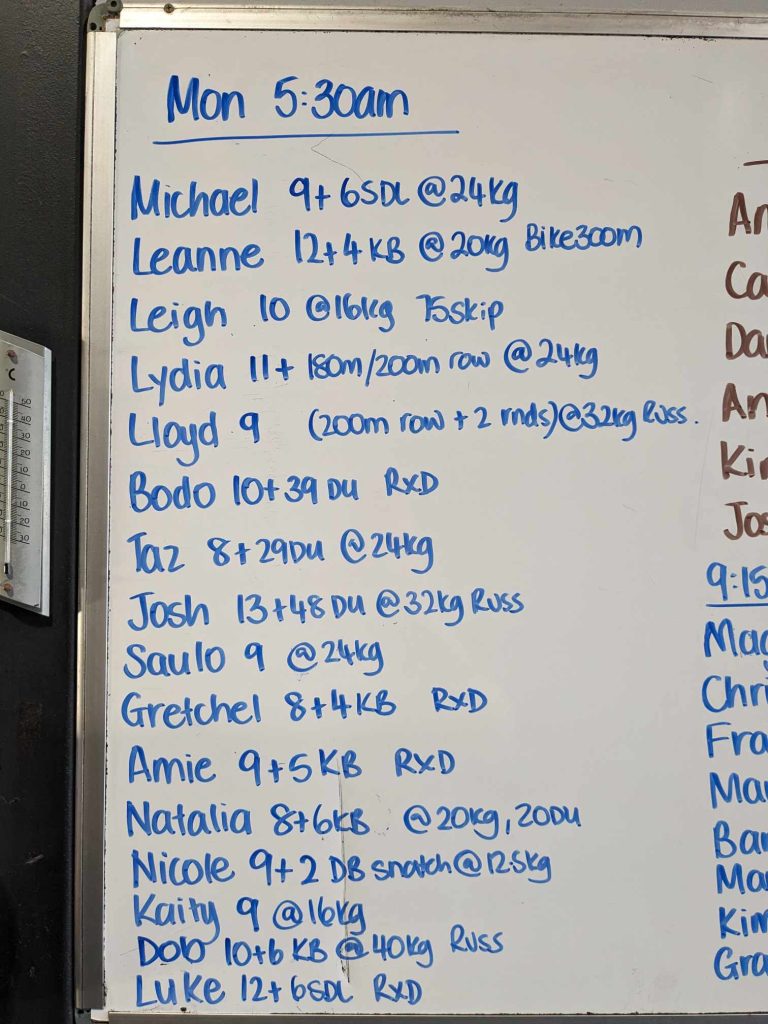 Mon 5:30am
Michael 9+6SDL @24kg
Leanne 12+4 KB @20kg Bike300m
Leigh 10 @16kg 75skip
Lydia 11+ 180m/200m row @24kg
Lloyd 9 (200m row + 2 rnds)@32kg Russ.
Bodo 10+39 DU RxD
Taz 8+29DU @24kg
Josh 13+48 DU @32kg Russ
Saulo 9 @24kg
Gretchel 8+4KB RxD
Amie 9+5KB RxD
Natalia 8+6KB @20kg, 20DU
Nicole 9+2 DB snatch@12.5kg
Kaity 9 @16kg
Dob 10+6 KB @40kg Russ
Luke 12+6SDL RxD
An
Ca
Da
An
Kin
Jos
9:15
Mag
Chri
Fra
Mar
Bar
Mar
Kim
Gra
°C